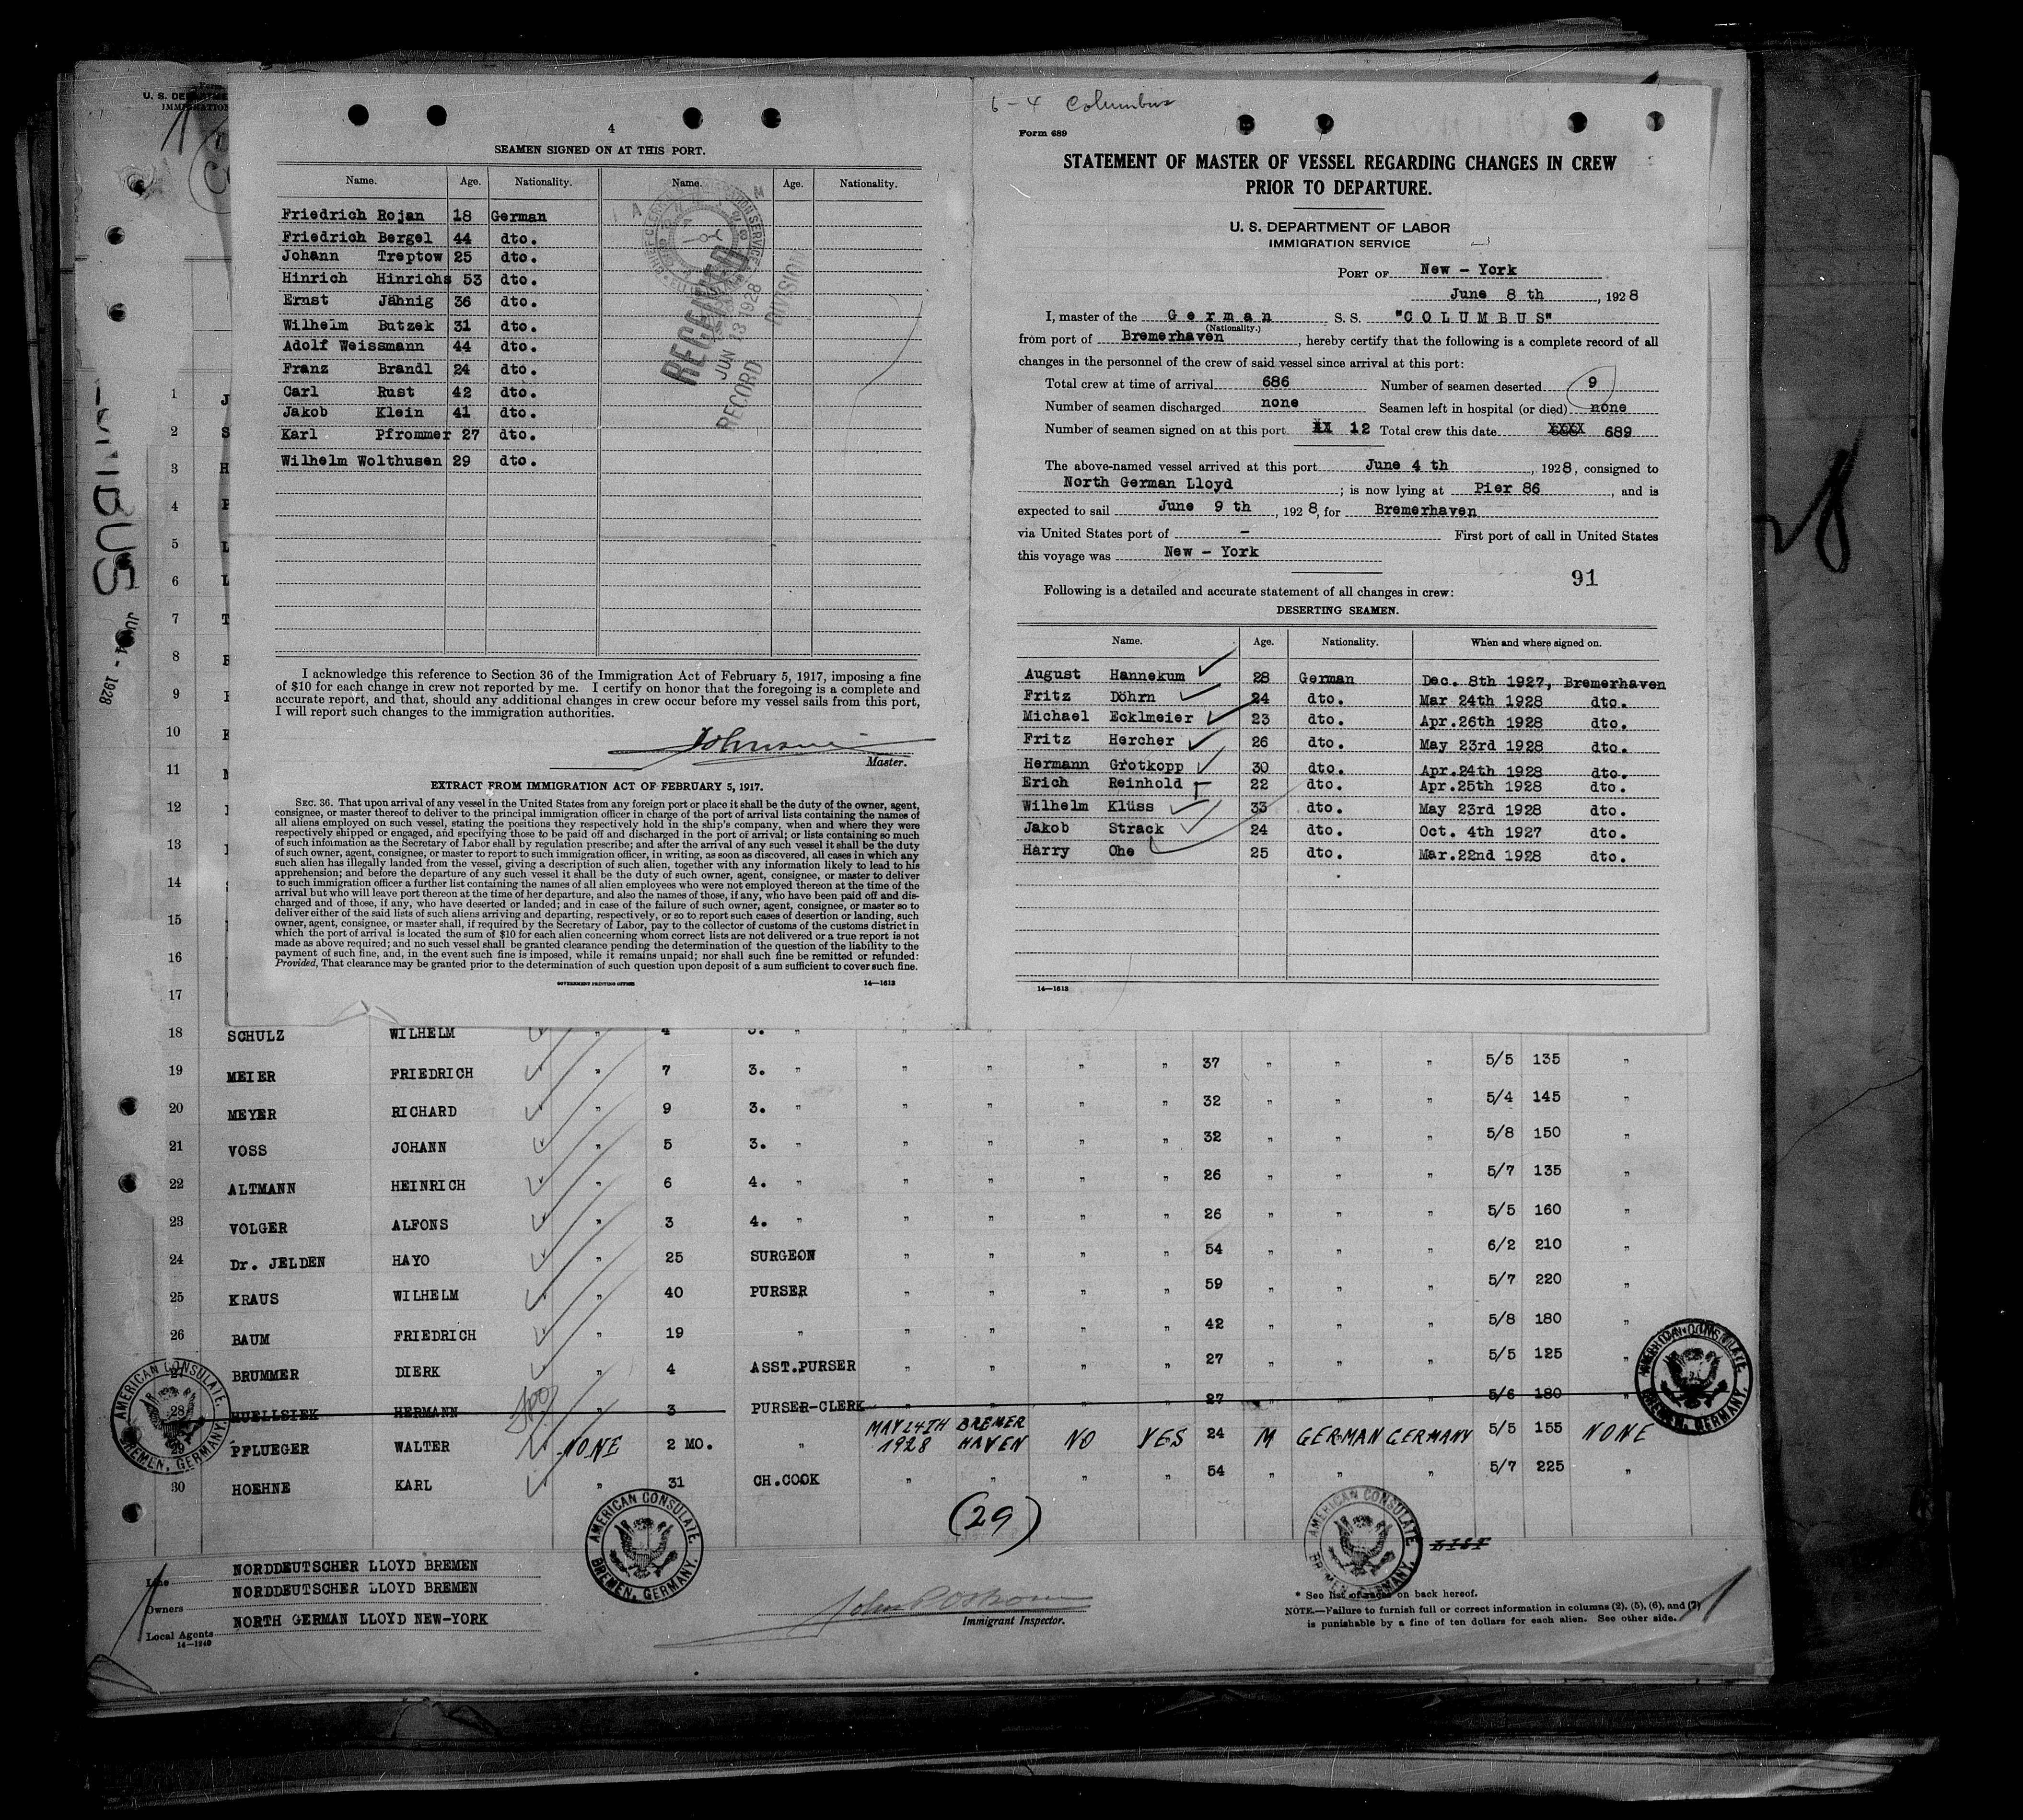 4
SEAMEN SIGNED ON AT THIS PORT.
Name. Age. Nationality. Name. Age. Nationality.
Friedrich Rojan 18 German
Friedrich Bergel 44 dto.
Johann Treptow 25 dto.
Hinrich Hinrichs 53 dto.
Ernst Jähnig 36 dto.
Wilhelm Butzek 31 dto.
Adolf Weissmann 44 dto.
Franz Brandl 24 dto.
Carl Rust 42 dto.
Jakob Klein 41 dto.
Karl Pfrommer 27 dto.
Wilhelm Wolthusen 29 dto.
RECEIVED
JUN 13 1928
RECORD DIVISION
I acknowledge this reference to Section 36 of the Immigration Act of February 5, 1917, imposing a fine
of $10 for each change in crew not reported by me. I certify on honor that the foregoing is a complete and
accurate report, and that, should any additional changes in crew occur before my vessel sails from this port,
I will report such changes to the immigration authorities.
Master.
EXTRACT FROM IMMIGRATION ACT OF FEBRUARY 5, 1917.
SEC. 36. That upon arrival of any vessel in the United States from any foreign port or place it shall be the duty of the owner, agent,
consignee, or master thereof to deliver to the principal immigration officer in charge of the port of arrival lists containing the names of
all aliens employed on such vessel, stating the positions they respectively hold in the ship's company, when and where they were
respectively shipped or engaged, and specifying those to be paid off and discharged in the port of arrival; or lists containing so much
of such information as the Secretary of Labor shall by regulation prescribe; and after the arrival of any such vessel it shall be the duty
of such owner, agent, consignee, or master to report to such immigration officer, in writing, as soon as discovered, all cases in which any
such alien has illegally landed from the vessel, giving a description of such alien, together with any information likely to lead to his
apprehension; and before the departure of any such vessel it shall be the duty of such owner, agent, consignee, or master to deliver
to such immigration officer a further list containing the names of all alien employees who were not employed thereon at the time of the
arrival but who will leave port thereon at the time of her departure, and also the names of those, if any, who have been paid off and dis-
charged and of those, if any, who have deserted or landed; and in case of the failure of such owner, agent, consignee, or master so to
deliver either of the said lists of such aliens arriving and departing, respectively, or so to report such cases of desertion or landing, such
owner, agent, consignee, or master shall, if required by the Secretary of Labor, pay to the collector of customs of the customs district in
which the port of arrival is located the sum of $10 for each alien concerning whom correct lists are not delivered or a true report is not
made as above required; and no such vessel shall be granted clearance pending the determination of the question of the liability to the
payment of such fine, and, in the event such fine is imposed, while it remains unpaid; nor shall such fine be remitted or refunded:
Provided, That clearance may be granted prior to the determination of such question upon deposit of a sum sufficient to cover such fine.
GOVERNMENT PRINTING OFFICE 14—1613
6 - 4 Columbus
Form 689
STATEMENT OF MASTER OF VESSEL REGARDING CHANGES IN CREW
PRIOR TO DEPARTURE.
U. S. DEPARTMENT OF LABOR
IMMIGRATION SERVICE
PORT OF New - York
June 8 th, 1928
I, master of the German S. S. "COLUMBUS"
(Nationality.)
from port of Bremerhaven, hereby certify that the following is a complete record of all
changes in the personnel of the crew of said vessel since arrival at this port:
Total crew at time of arrival 686 Number of seamen deserted 9
Number of seamen discharged none Seamen left in hospital (or died) none
Number of seamen signed on at this port XX 12 Total crew this date XXXX 689
The above-named vessel arrived at this port June 4 th, 1928, consigned to
North German Lloyd; is now lying at Pier 86, and is
expected to sail June 9 th, 1928, for Bremerhaven
via United States port of - First port of call in United States
this voyage was New - York
91
Following is a detailed and accurate statement of all changes in crew:
DESERTING SEAMEN.
Name. Age. Nationality. When and where signed on.
August Hannekum 28 German Dec. 8th 1927, Bremerhaven
Fritz Döhrn 24 dto. Mar 24th 1928 dto.
Michael Ecklmeier 23 dto. Apr.26th 1928 dto.
Fritz Hercher 26 dto. May 23rd 1928 dto.
Hermann Grotkopp 30 dto. Apr.24th 1928 dto.
Erich Reinhold 22 dto. Apr.25th 1928 dto.
Wilhelm Klüss 33 dto. May 23rd 1928 dto.
Jakob Strack 24 dto. Oct. 4th 1927 dto.
Harry Ohe 25 dto. Mar.22nd 1928 dto.
14—1613
1
2
3
4
5
6
7
8
9
10
11
12
13
14
15
16
17
18 SCHULZ WILHELM " 4 3. "
19 MEIER FRIEDRICH " 7 3. " " " " " 37 " " " 5/5 135 "
20 MEYER RICHARD " 9 3. " " " " " 32 " " " 5/4 145 "
21 VOSS JOHANN " 5 3. " " " " " 32 " " " 5/8 150 "
22 ALTMANN HEINRICH " 6 4. " " " " " 26 " " " 5/7 135 "
23 VOLGER ALFONS " 3 4. " " " " " 26 " " " 5/5 160 "
24 Dr. JELDEN HAYO " 25 SURGEON " " " " 54 " " " 6/2 210 "
25 KRAUS WILHELM " 40 PURSER " " " " 59 " " " 5/7 220 "
26 BAUM FRIEDRICH " 19 " " " " " 42 " " " 5/8 180 "
27 BRUMMER DIERK " 4 ASST.PURSER " " " " 27 " " " 5/5 125 "
28 HUELLSIEK HERMANN " 3 PURSER-CLERK " " " " 27 " " " 5/6 180 "
29 PFLUEGER WALTER NONE 2 MO. " MAY 24TH 1928 BREMER HAVEN NO YES 24 M GERMAN GERMANY 5/5 155 NONE
30 HOEHNE KARL " 31 CH.COOK " " " " 54 " " " 5/7 225 "
(29)
AMERICAN CONSULATE
BREMEN, GERMANY.
AMERICAN CONSULATE
BREMEN, GERMANY.
AMERICAN CONSULATE
BREMEN, GERMANY.
AMERICAN CONSULATE
BREMEN, GERMANY.
Line NORDDEUTSCHER LLOYD BREMEN
Owners NORDDEUTSCHER LLOYD BREMEN
Local Agents NORTH GERMAN LLOYD NEW-YORK
14—1240
Immigrant Inspector.
* See list of races on back hereof.
NOTE.—Failure to furnish full or correct information in columns (2), (5), (6), and (7)
is punishable by a fine of ten dollars for each alien. See other side.